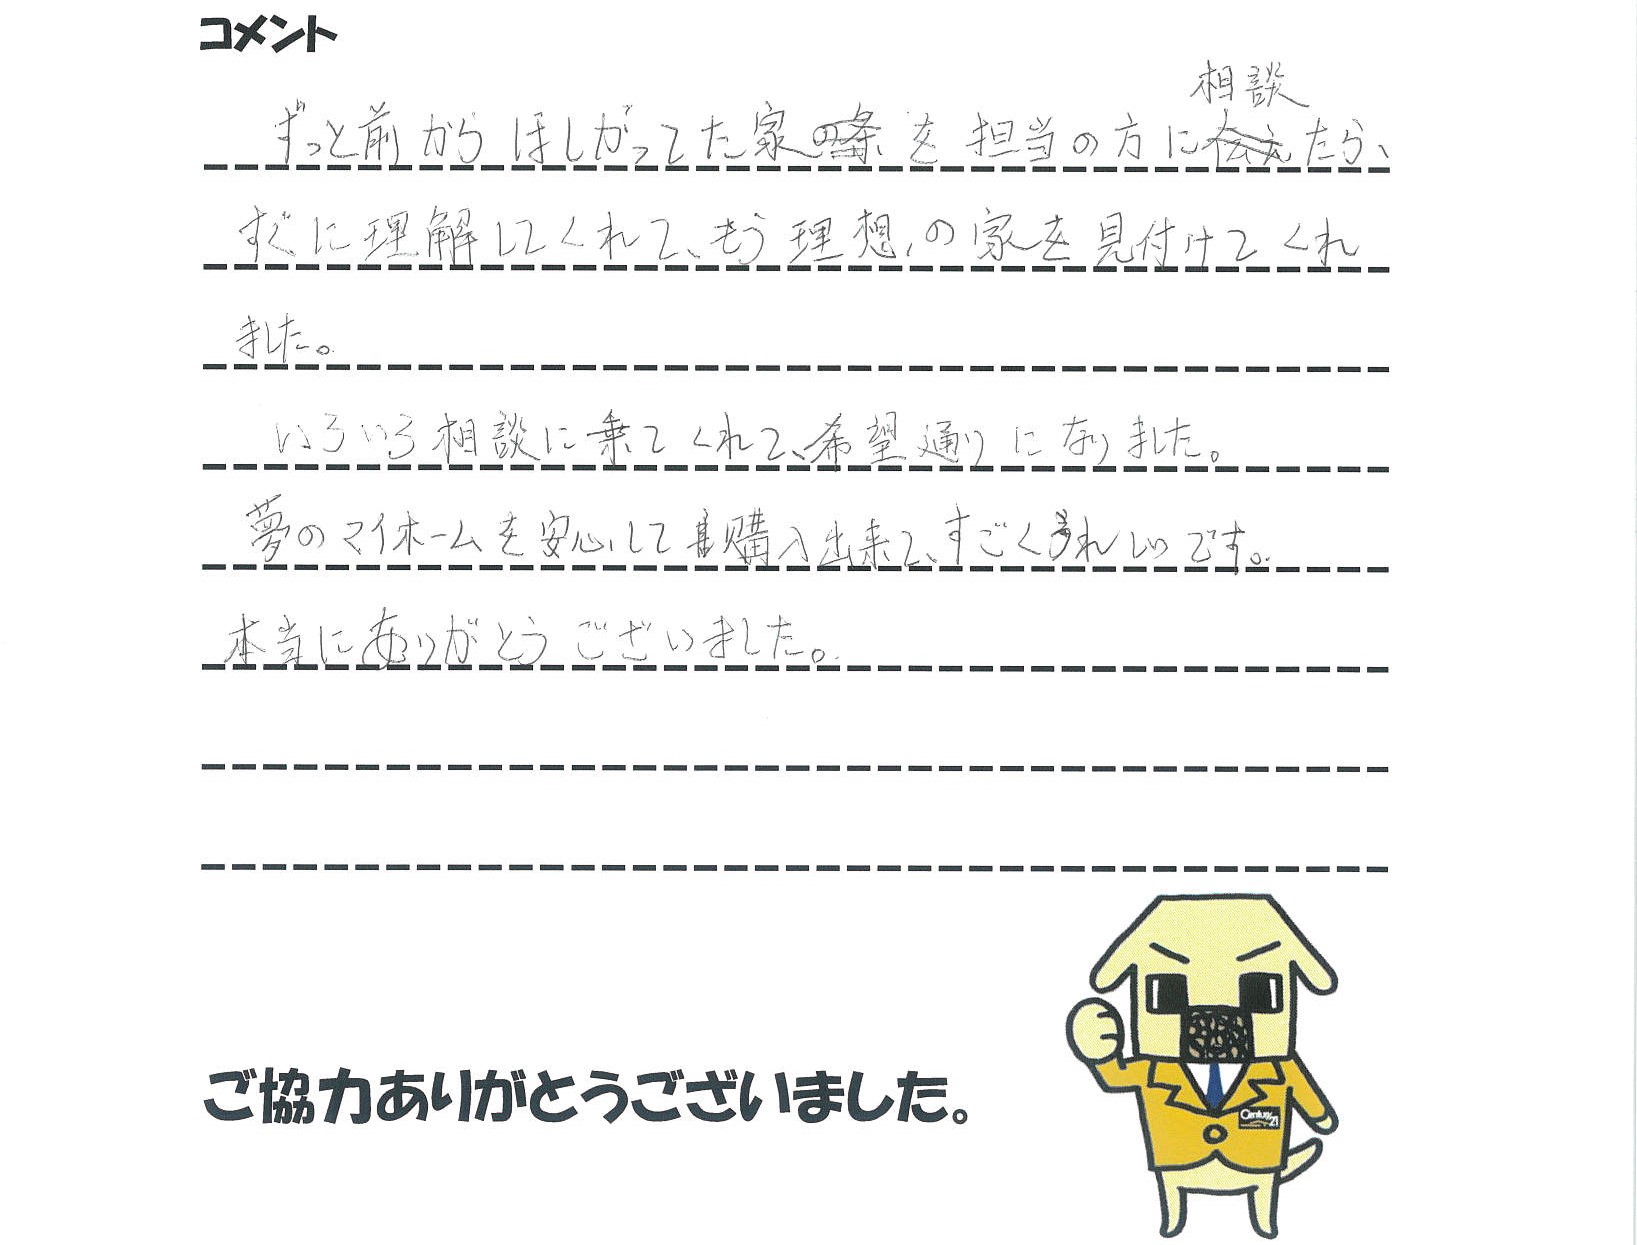 コメント
相談
ずっと前からほしがってた家を担当の方にたら、
すぐに理解してくれて、もう理想の家を見付けてくれ
ました。
いろいろ相談に乗てくれて、希望通りになりました。
夢のマイホームを安心して購入出来て、すごくうれしいです。
本当にありがとうございました。
ご協力ありがとうございました。
Century 21